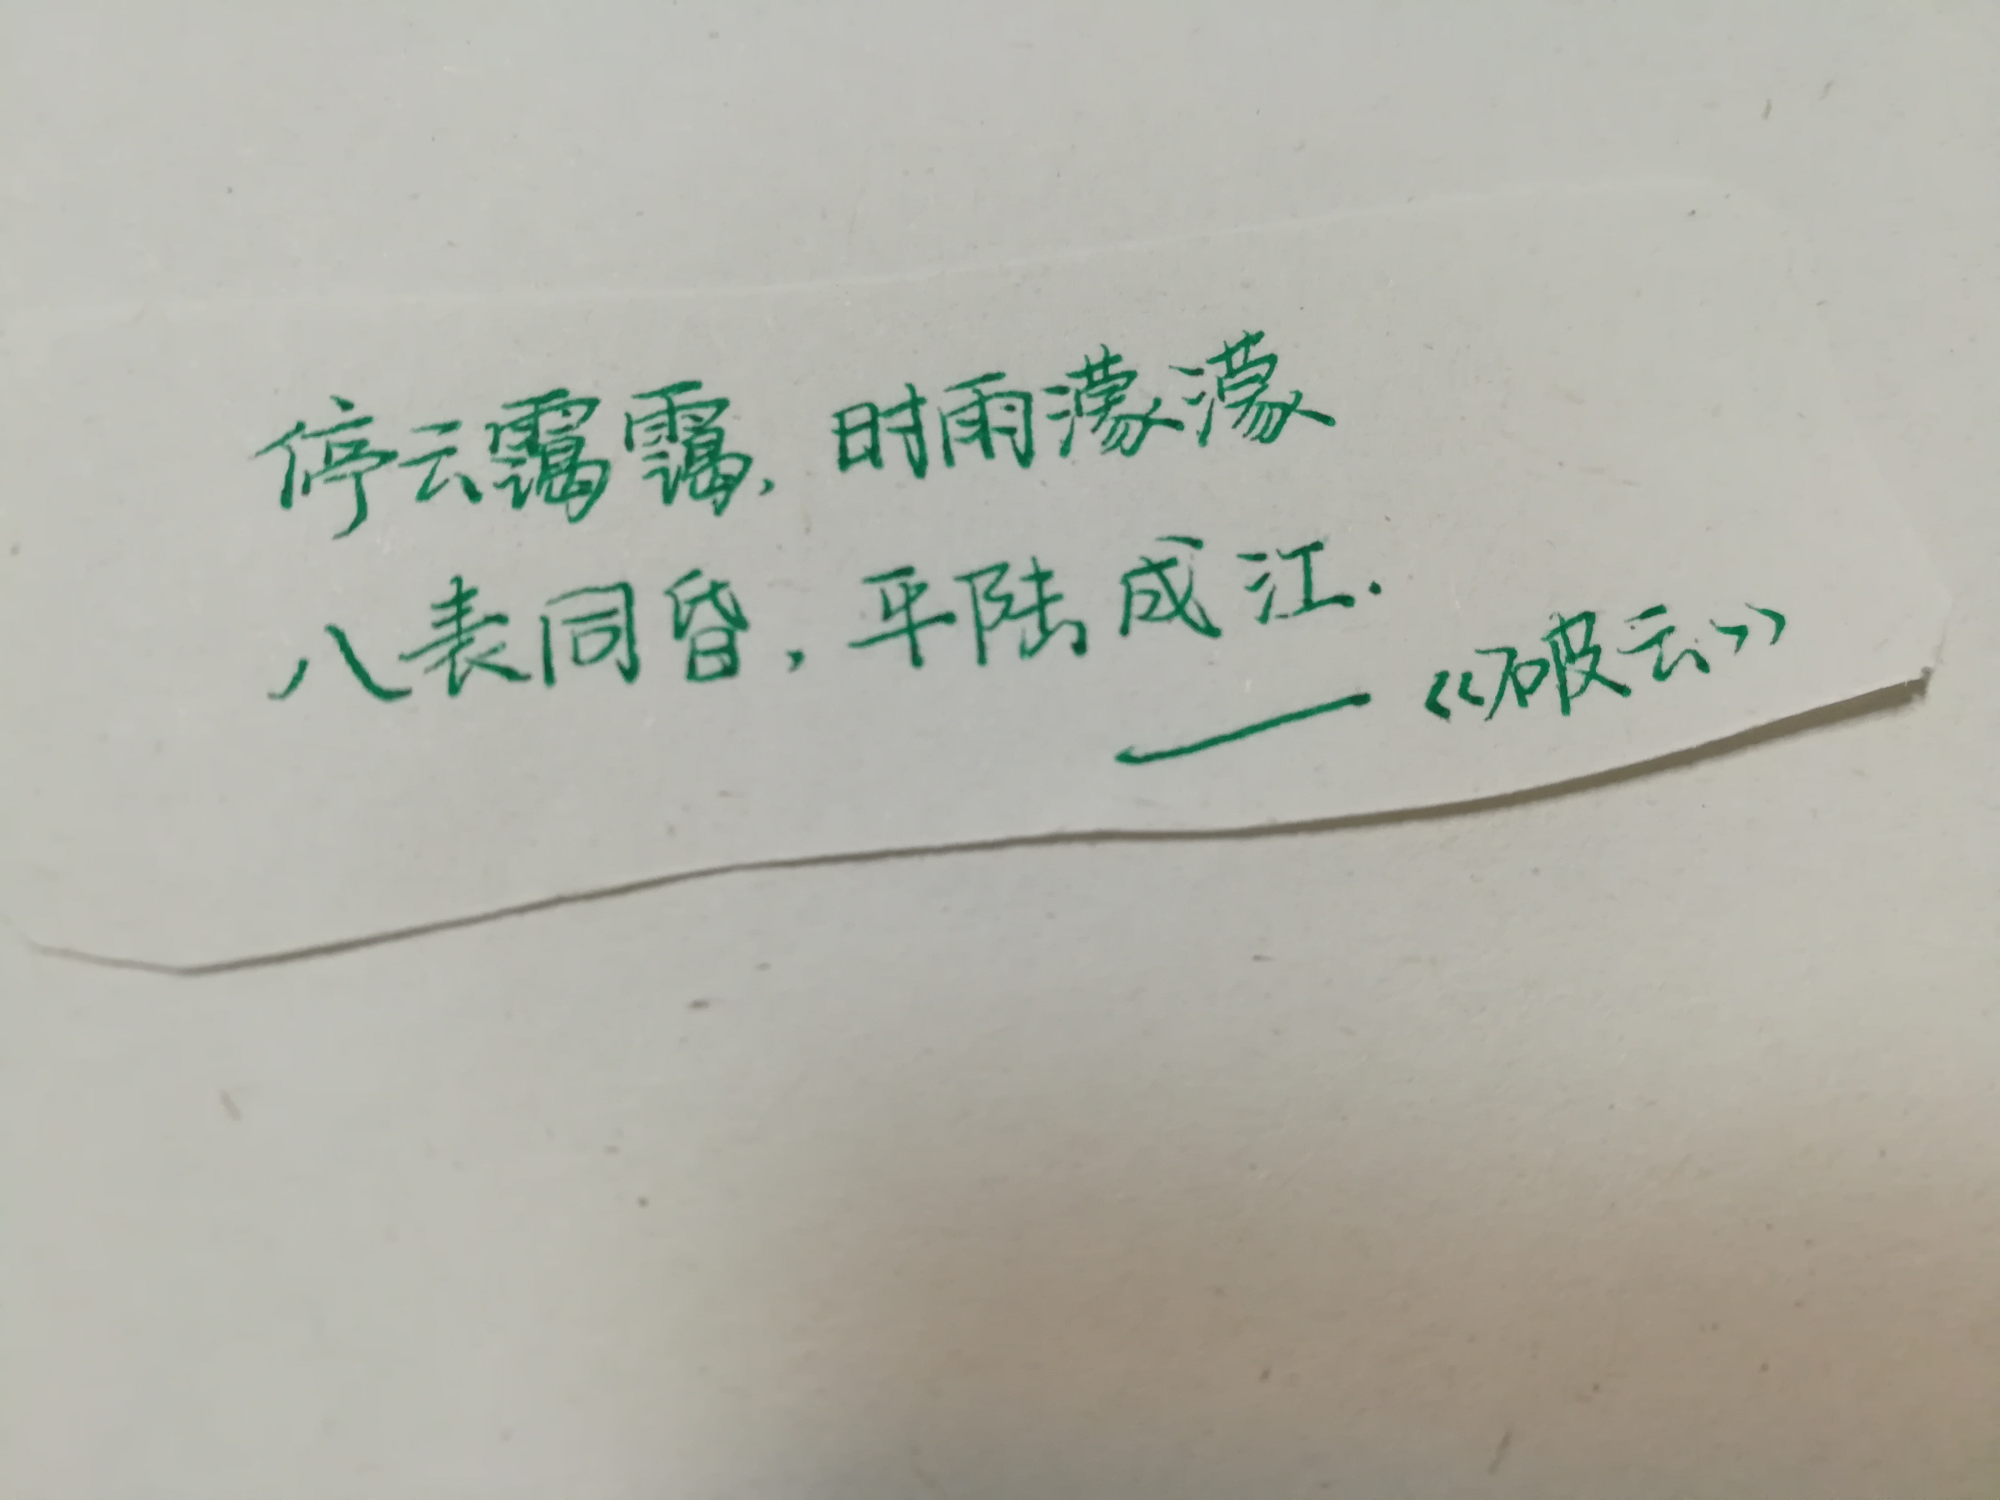 停云霭霭，时雨濛濛
八表同昏，平陆成江.
——《破云》